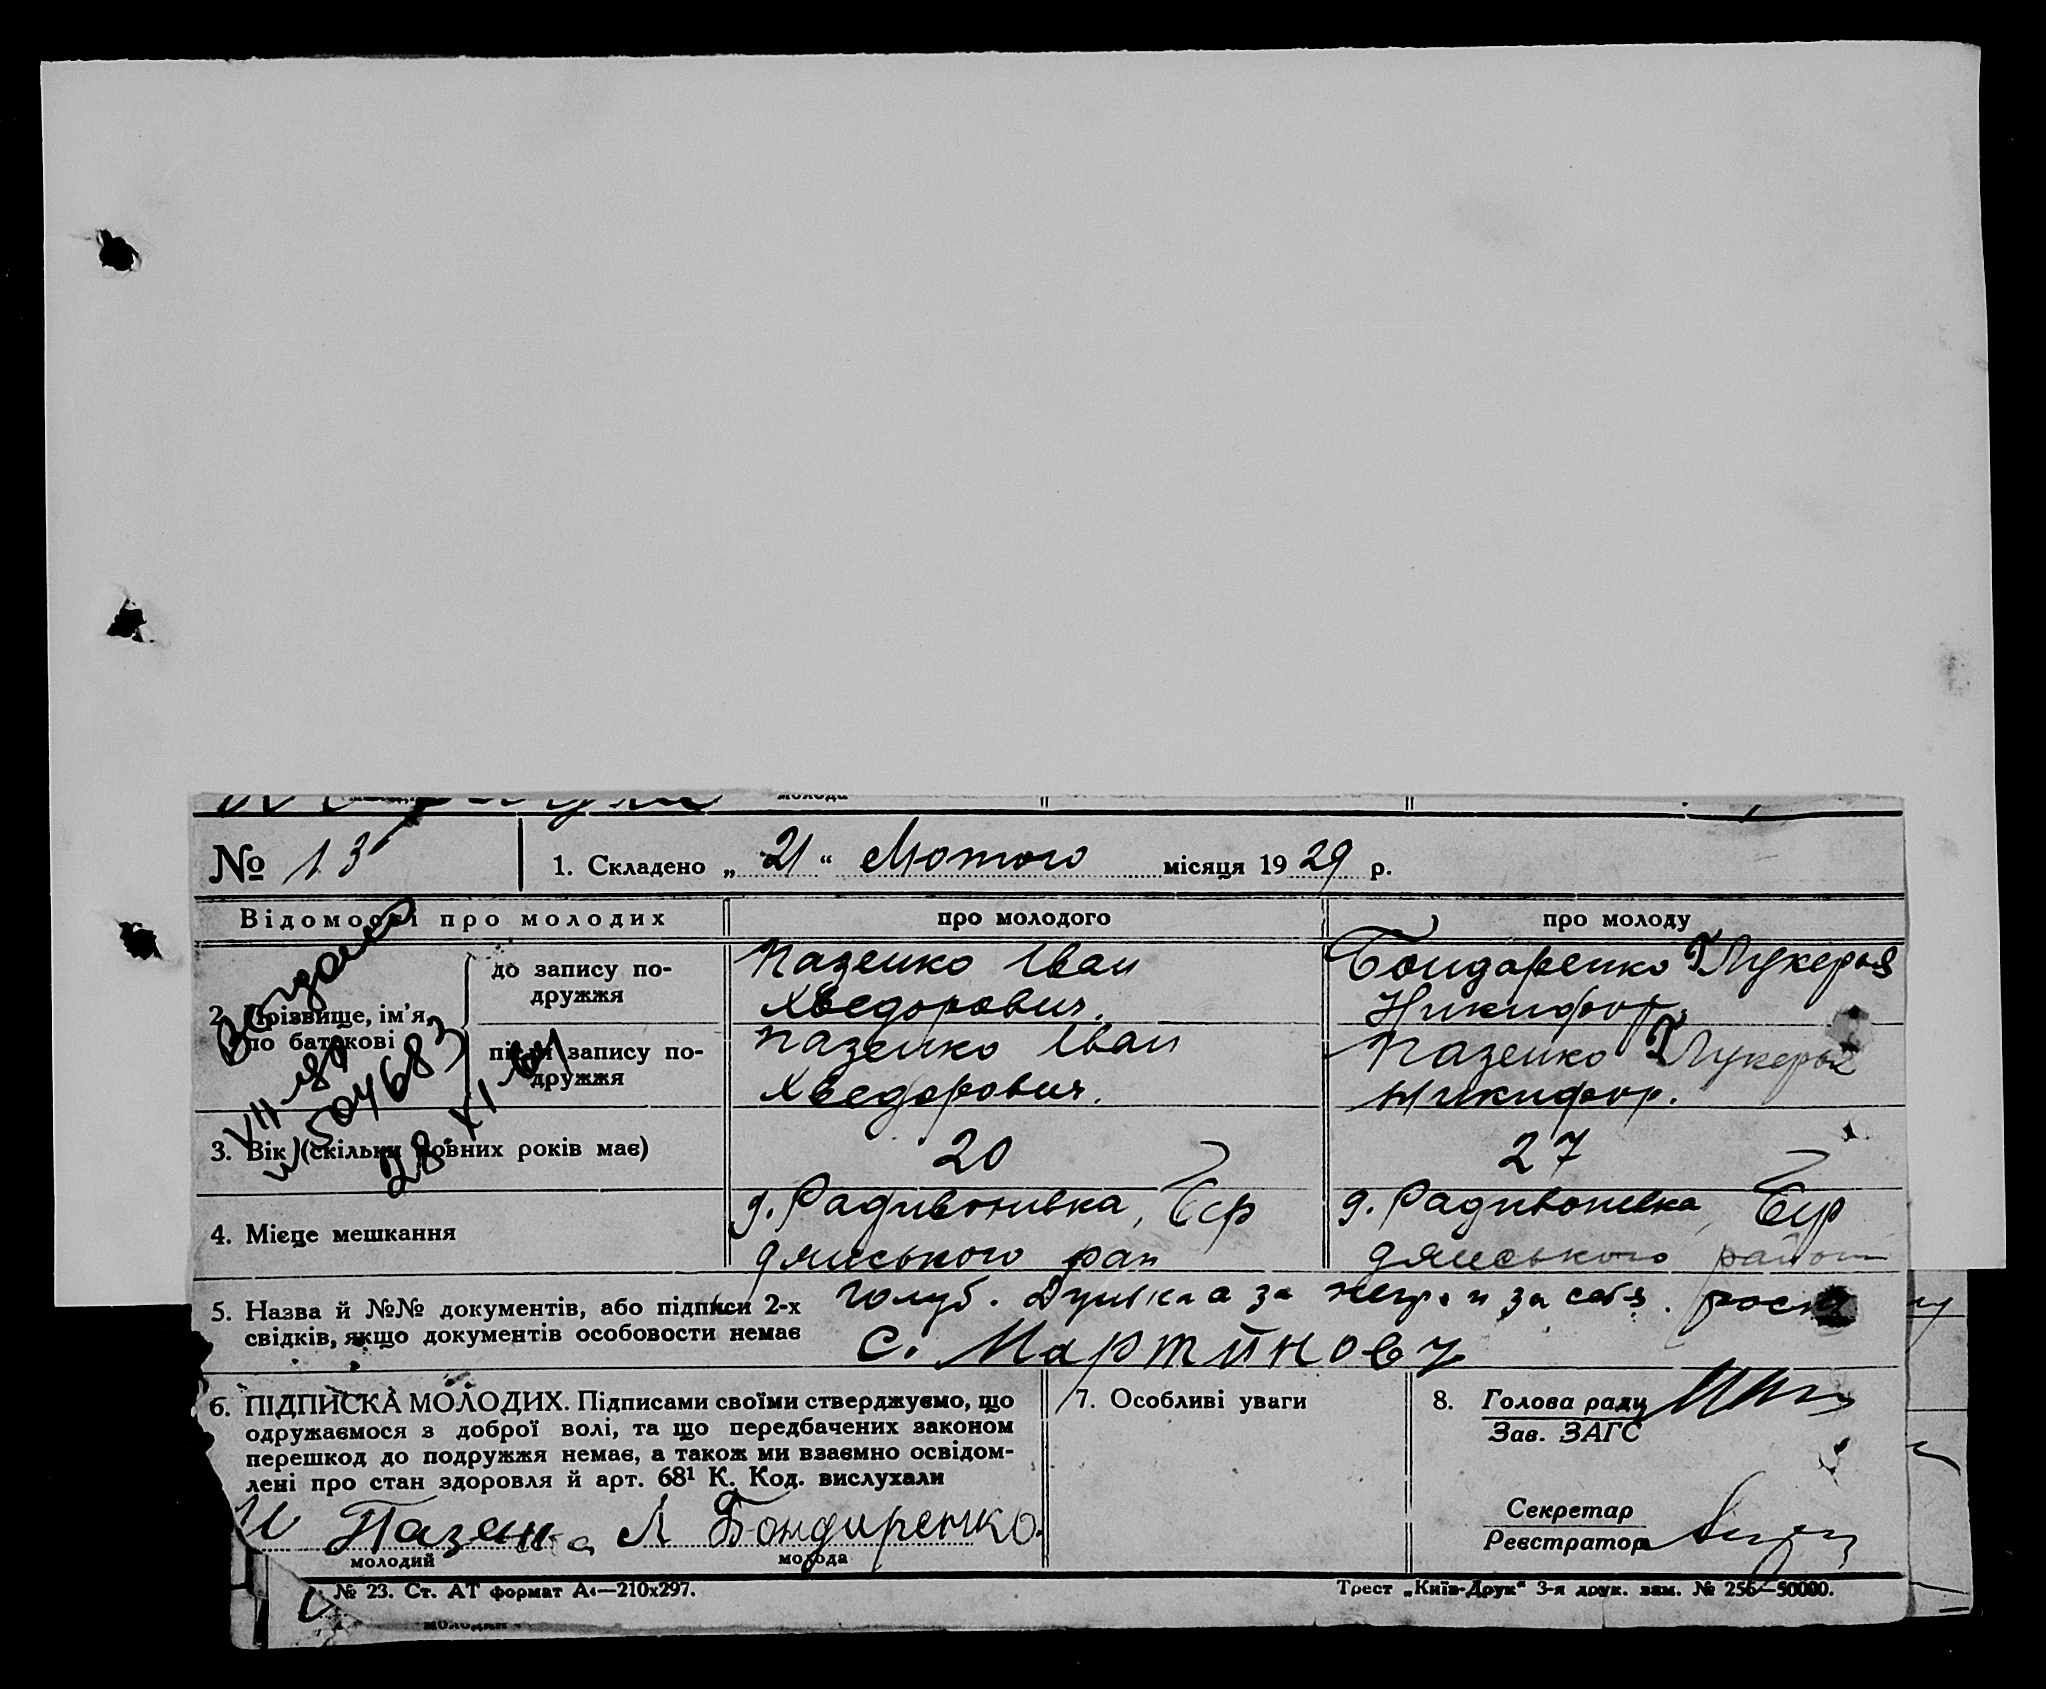 молода
№ 13
1. Складено „ 21 “ Лютого місяця 19 29 р.
Відомості про молодих
про молодого
про молоду
2. Прізвище, ім'я, по батькові
до запису по-
дружжя
Пазенко Іван
Хведорович.
Бондаренко Глукерья
Никифор.
після запису по-
дружжя
Пазенко Іван
Хведорович.
Пазенко Глукерья
Никифор.
3. Вік (скільки повних років має)
20
27
4. Місце мешкання
д. Радивонивка, Бер
дянського рай
д. Радивонивка, Бер
дянського район
5. Назва й №№ документів, або підписи 2-х
свідків, якщо документів особовости немає
за себя
с. Мартинову
6. ПІДПИСКА МОЛОДИХ. Підписами своїми стверджуємо, що
одружаємося з доброї волі, та що передбачених законом
перешкод до подружжя немає, а також ми взаємно освідом-
лені про стан здоровля й арт. 68¹ К. Код. вислухали
И Пазенка Л Бондиренко.
молодий
молода
7. Особливі уваги
8. Голова раду
Зав. ЗАГС
Секретар
Реєстратор
№ 23. Ст. АТ формат А4—210х297.
Трест „Київ-Друк“ 3-я друк. зам. № 256—50000.
молодий
504683
28 XI